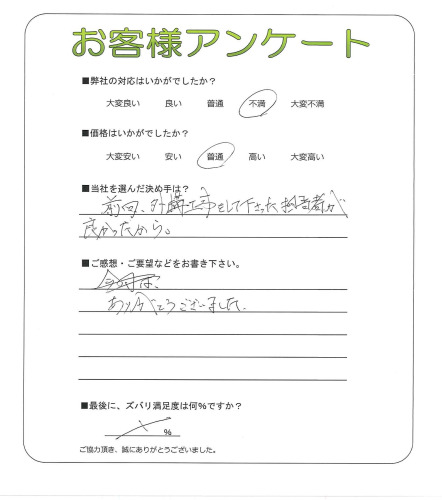 お客様アンケート
■弊社の対応はいかがでしたか?
大変良い 良い 普通 不満 大変不満
■価格はいかがでしたか?
大変安い 安い 普通 高い 大変高い
■当社を選んだ決め手は?
前回、外構工事をして下さった担当者が
良かったから。
■ご感想・ご要望などをお書き下さい。
ありがとうございました。
■最後に、ズバリ満足度は何%ですか?
%
ご協力頂き、誠にありがとうございました。